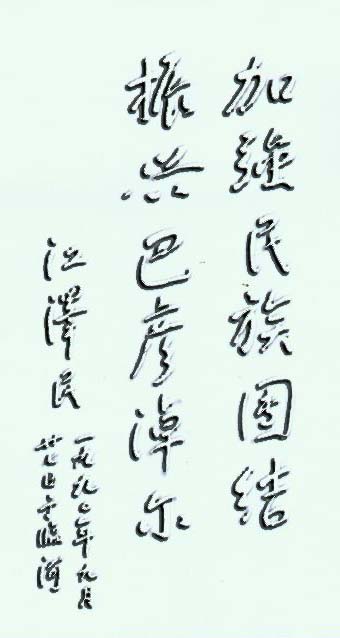 加强民族团结
振兴巴彦淖尔
江澤民
一九九〇年九月
日于臨河